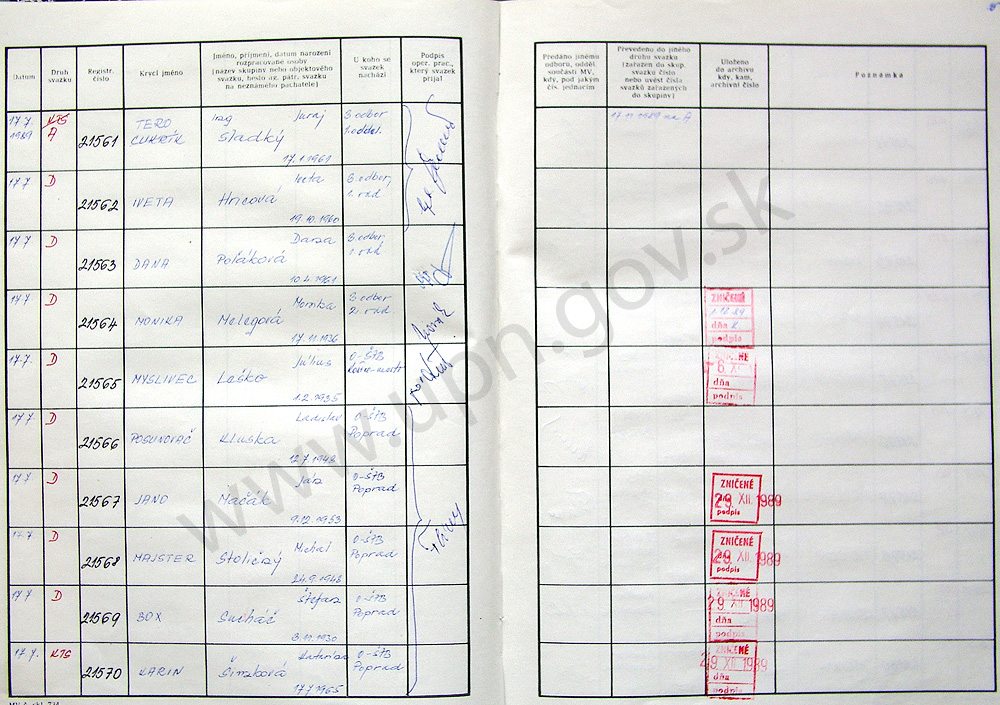 Datum
Druh svazku
Registr. číslo
Krycí jméno
Jméno, příjmení, datum narození
rozpracované osoby
(název skupiny nebo objektového
svazku, heslo az. pátr. svazku
na neznámého pachatele)
U koho se
svazek
nachází
Podpis
oper. prac.,
který svazek
přijal
Předáno jinému
odboru, odděl.
součásti MV,
kdy, pod jakým
čís. jednacím
Převedeno do jiného
druhu svazku
(zařazen do skup.
svazku číslo
nebo uvést čísla
svazků zařazených
do skupiny)
Uloženo
do archivu
kdy, kam,
archivní číslo
Poznámka
17.7. 1989
KTS A
21561
TERO
CUKRÍK
Ing Juraj
Sladký
17.1.1961
3. odbor
1. oddel.
17.11.1989 na A
17.7. D
21562
IVETA
Iveta
Hricová
19.10.1960
3. odbor,
1. odd.
17.7. D
21563
DANA
Dana
Poláková
10.4.1961
3. odbor
1. odd.
17.7. D
21564
MONIKA
Monika
Melegová
17.11.1936
3. odbor
2. odd.
ZNIČENÉ
dňa
podpis
17.7. D
21565
MYSLIVEC
Július
Laško
1.2.1935
O-ŠTB
dňa
podpis
17.7. D
21566
POSUNOVAČ
Ladislav
Kluska
12.7.1948
O-ŠTB
Poprad
17.7. D
21567
JANO
Ján
Mačák
9.12.1953
O-ŠTB
Poprad
ZNIČENÉ
29. XII. 1989
podpis
17.7. D
21568
MAJSTER
Michal
Stoličný
24.9.1948
O-ŠTB
Poprad
ZNIČENÉ
29. XII. 1989
podpis
17.7. D
21569
BOX
Štefan
Sucháč
3.11.1930
O-ŠTB
Poprad
29. XII. 1989
dňa
podpis
17.7. KTS
21570
KARIN
Katarína
Šimková
17.7.1965
O-ŠTB
Poprad
ZNIČENÉ
29. XII. 1989
dňa
podpis
www.upn.gov.sk